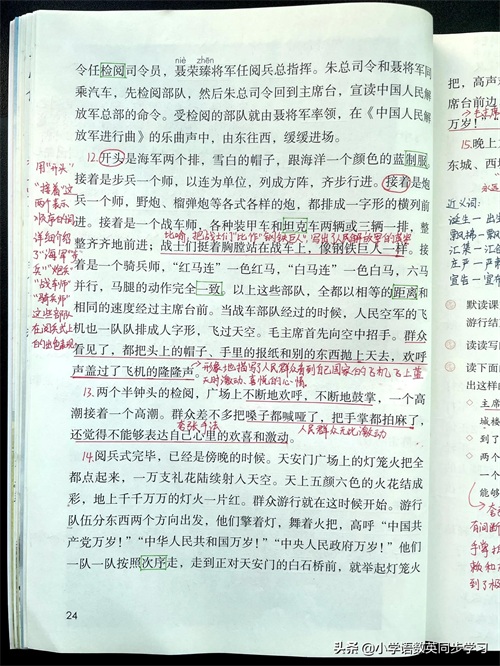 niè zhēn
令任检阅司令员，聂荣臻将军任阅兵总指挥。朱总司令和聂将军同
乘汽车，先检阅部队，然后朱总司令回到主席台，宣读中国人民解
放军总部的命令。受检阅的部队就由聂将军率领，在《中国人民解
放军进行曲》的乐曲声中，由东往西，缓缓进场。
12.开头是海军两个排，雪白的帽子，跟海洋一个颜色的蓝制服。
接着是步兵一个师，以连为单位，列成方阵，齐步行进。接着是炮
兵一个师，野炮、榴弹炮等各式各样的炮，都排成一字形的横列前
进。接着是一个战车师，各种装甲车和坦克车两辆或三辆一排，整
整齐齐地前进；战士们挺着胸膛站在战车上，像钢铁巨人一样。接
着是一个骑兵师，“红马连”一色红马，“白马连”一色白马，六马
并行，马腿的动作完全一致。以上这些部队，全都以相等的距离和
相同的速度经过主席台前。当战车部队经过的时候，人民空军的飞
机也一队队排成人字形，飞过天空。毛主席首先向空中招手。群众
看见了，都把头上的帽子、手里的报纸和别的东西抛上天去，欢呼
声盖过了飞机的隆隆声。
13.两个半钟头的检阅，广场上不断地欢呼，不断地鼓掌，一个高
潮接着一个高潮。群众差不多把嗓子都喊哑了，把手掌都拍麻了，
还觉得不能够表达自己心里的欢喜和激动。
夸张手法
人民群众无比激动
14.阅兵式完毕，已经是傍晚的时候。天安门广场上的灯笼火把全
都点起来，一万支礼花陆续射入天空。天上五颜六色的火花结成
彩，地上千千万万的灯火一片红。群众游行就在这时候开始。游行
队伍分东西两个方向出发，他们擎着灯，舞着火把，高呼“中国共
产党万岁！”“中华人民共和国万岁！”“中央人民政府万岁！”他们
一队一队按照次序走，走到正对天安门的白石桥前，就举起灯笼火
24
用“开头”
“接着”这
两个表示
详细介绍
了“海军”“步
兵”“炮兵”
“战车师”
“骑兵师”
这些部队
在阅兵式上
的出色表现
把，高声
席台前边
万岁！”
15.晚上
东城、西城
近义词：
诞生—出
飘拂—飘
汇集—汇
宣告—宣
默读课
游行结
读读写
读下面
出这样的
头条 @小学语数英同步学习